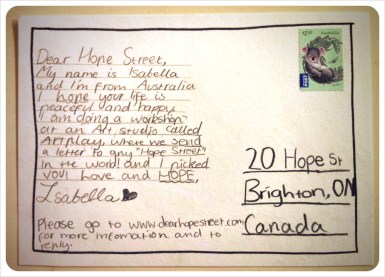 Dear Hope Street,
My name is Isabella
and i'm from Australia
I hope your life is
peaceful and happy
I am doing a workshop
at an Art studio called
Artplay, where we send
a letter to any "Hope Street"
in the world! and I picked
you! Love and HOPE,
Isabella
Please go to www.dearhopestreet.com
for more infomation and to
reply.
Australia
20 Hope St
Brighton, ON
Canada